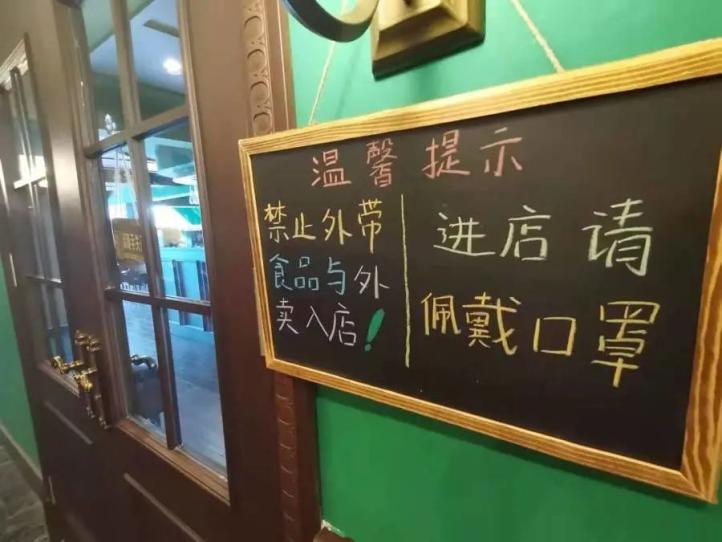 温馨提示
禁止外带
食品与外
卖入店！
进店请
佩戴口罩